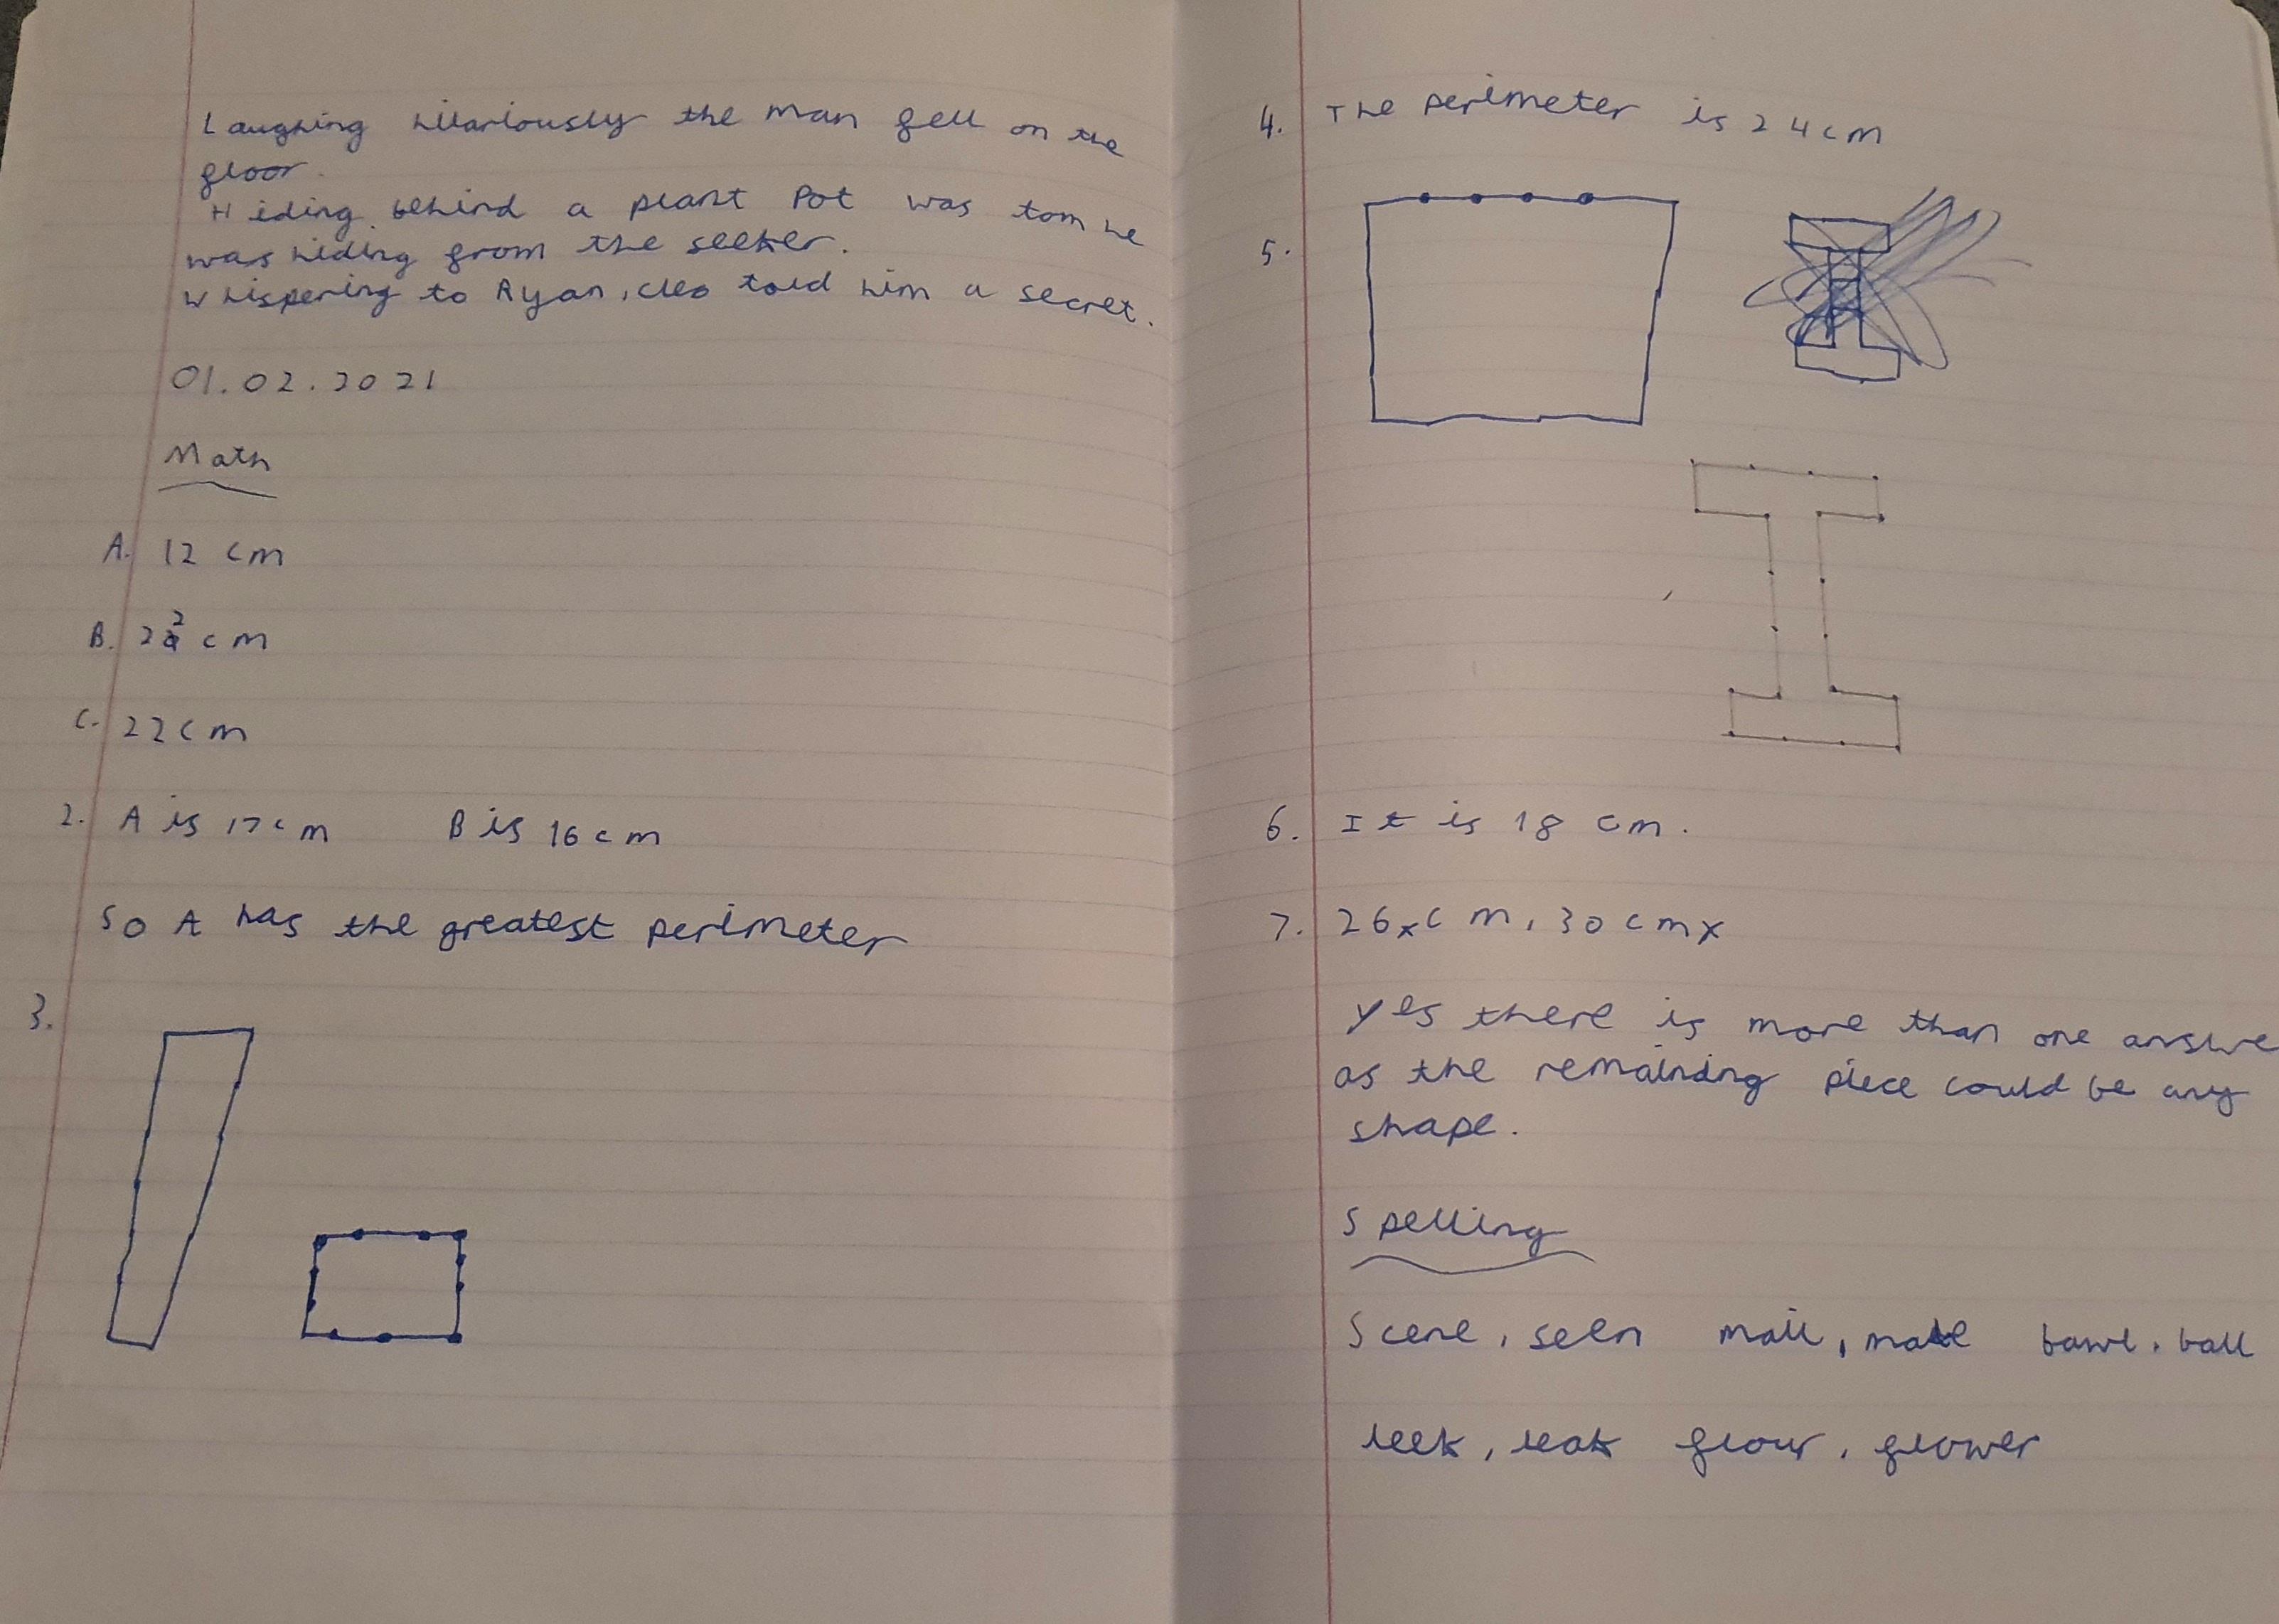 Laughing hilariously the man fell on the
floor.
Hiding behind a plant Pot was tom he
was hiding from the seeker.
Whispering to Ryan, cleo told him a secret.
01.02.2021
Math
A. 12 cm
B. 22 cm
C. 22cm
2. A is 17cm B is 16cm
So A has the greatest perimeter
3.
4. The perimeter is 24cm
5.
6. It is 18 cm.
7. 26xcm, 30cmx
Yes there is more than one answe
as the remainding piece could be any
shape.
Spelling
Scene, seen mail, male bawl, ball
leek, leak flour, flower